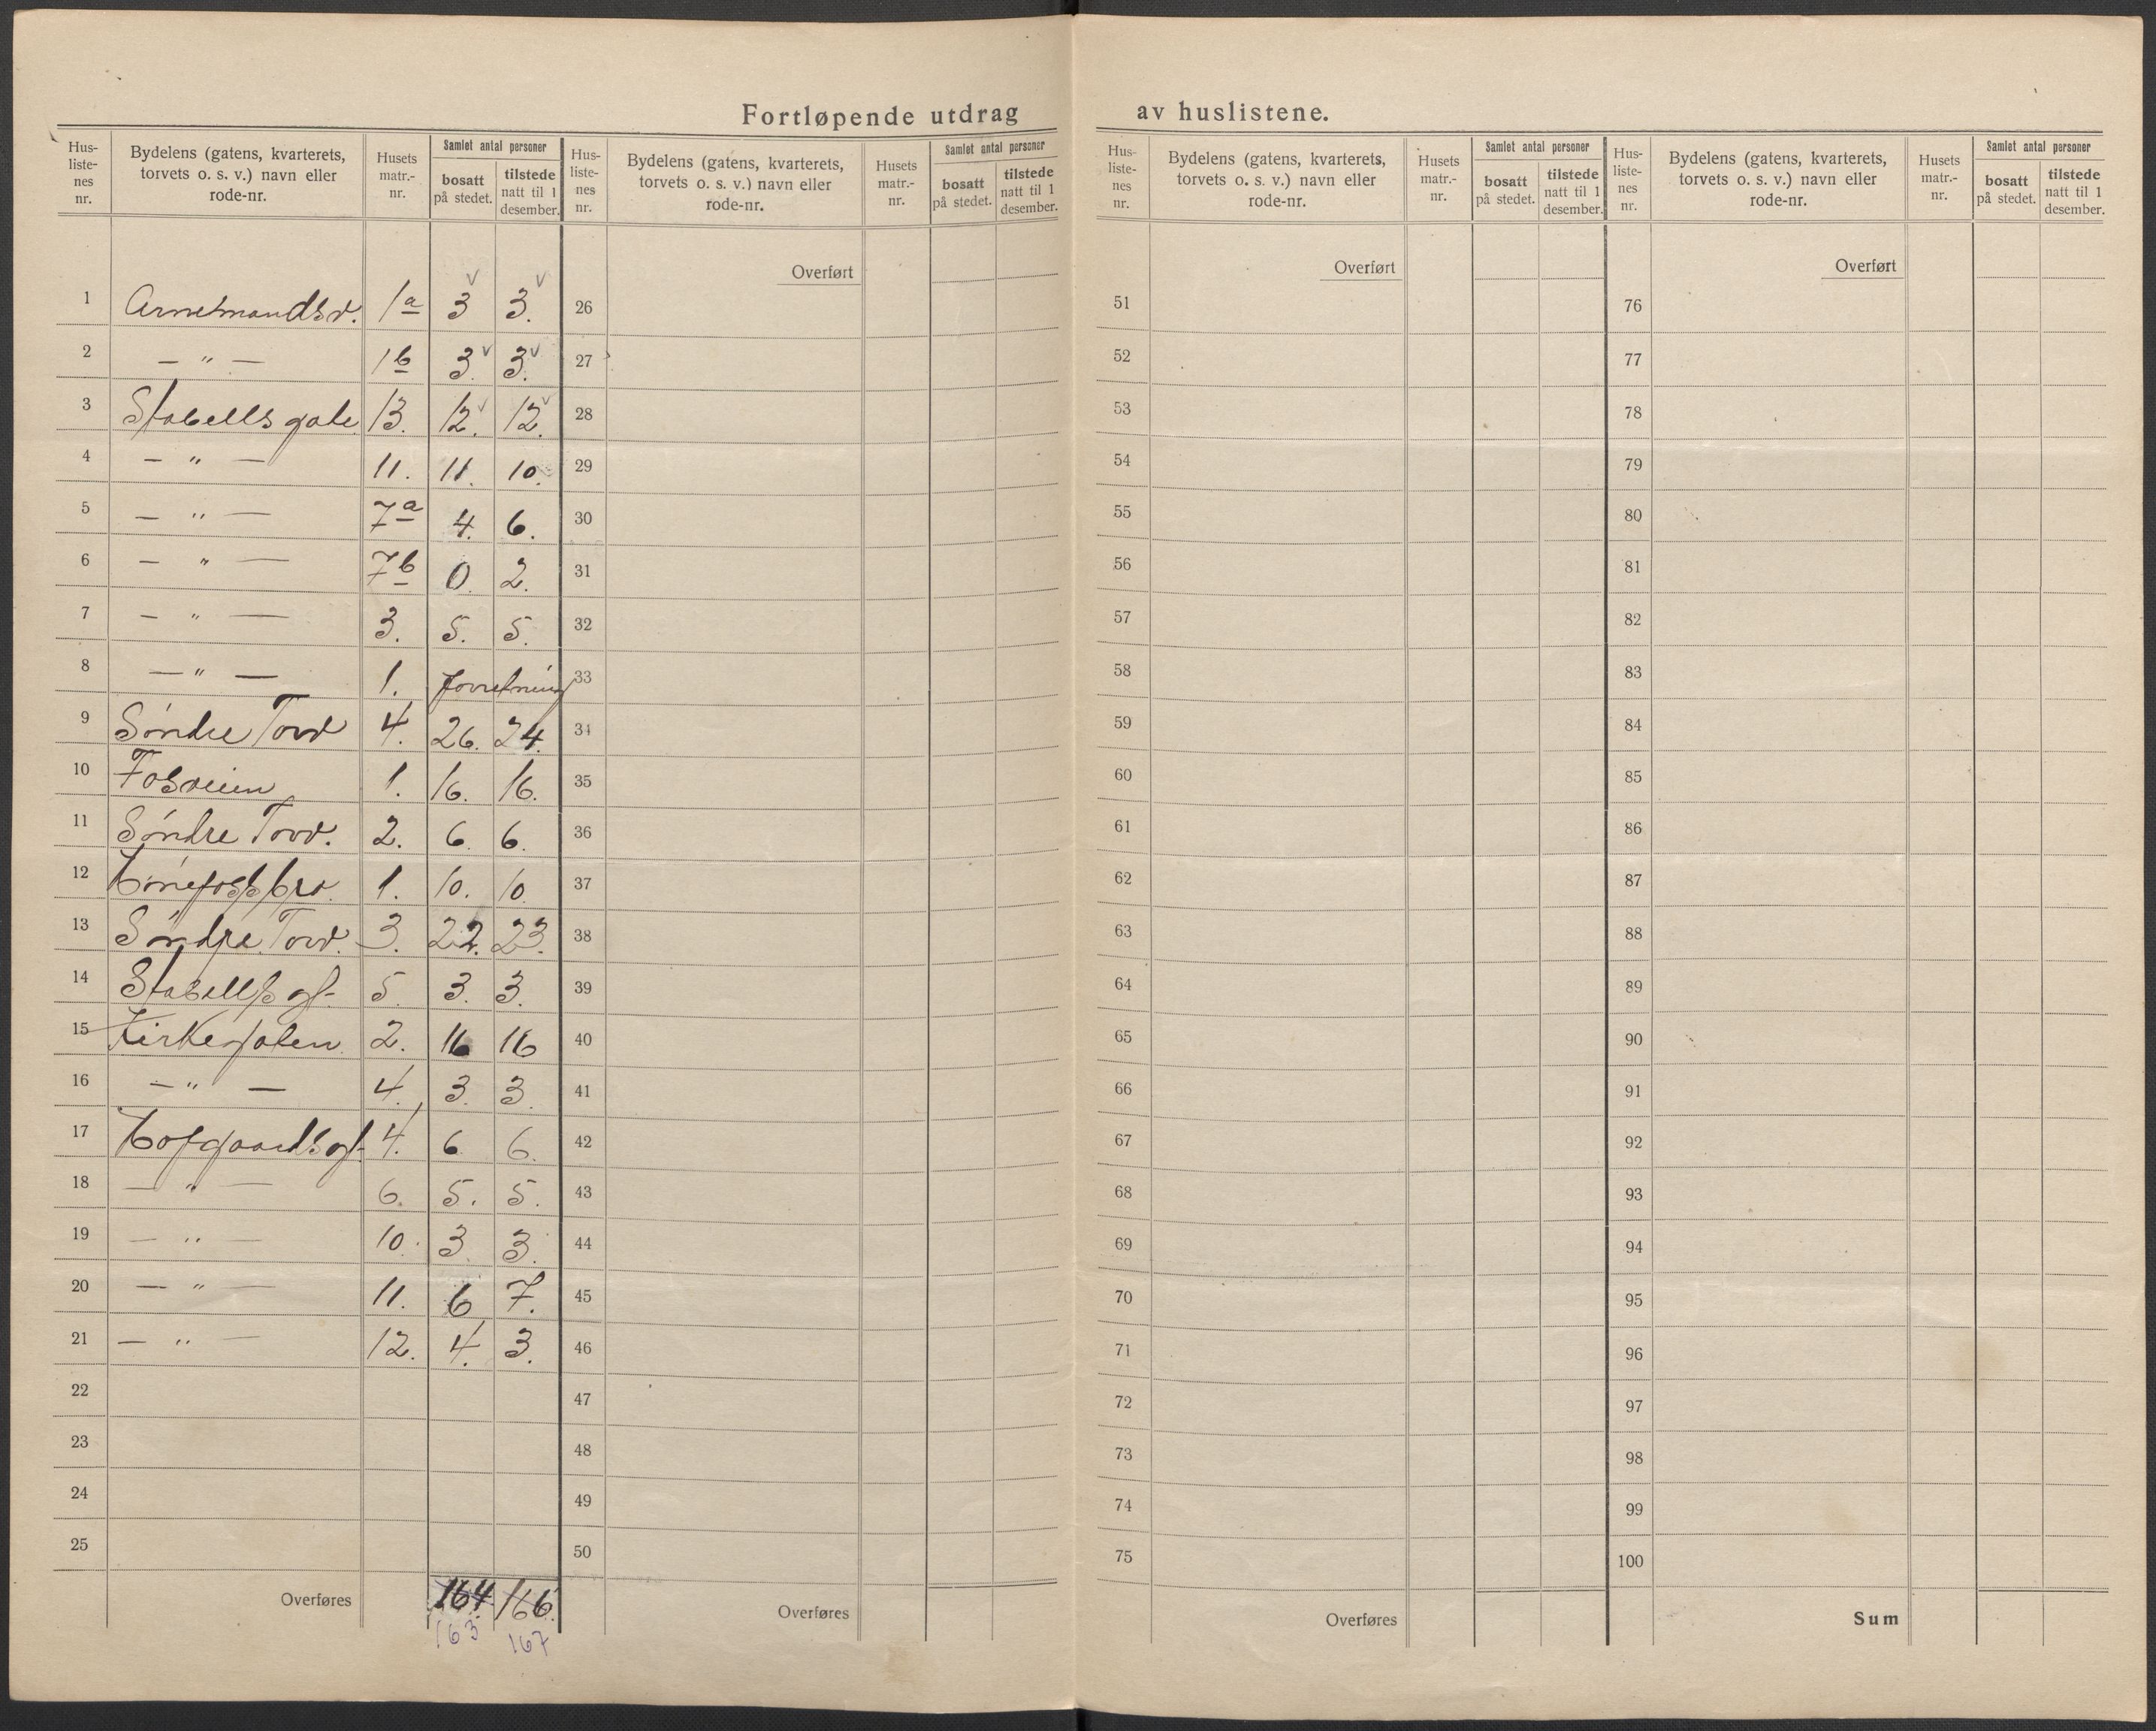 Fortløpende utdrag av huslistene.
Hus-listenes nr. | Bydelens (gatens, kvarterets, torvets o. s. v.) navn eller rode-nr. | Husets matr.-nr. | Samlet antal personer | bosatt på stedet. | tilstede natt til 1 desember.
1 Arnemandsv. 1a 3 3.
2 — " — 1b 3. 3.
3 Stabells gate 13. 12. 12.
4 — " — 11. 11. 10.
5 — " — 7a 4. 6.
6 — " — 7b 0. 2.
7 — " — 3. 5. 5.
8 — " — 1. forretning
9 Søndre Torv 4. 26. 24.
10 Fosveien 1. 16. 16.
11 Søndre Torv. 2. 6. 6.
12 Hønefoss bro. 1. 10. 10.
13 Søndre Torv. 3. 22. 23.
14 Stabells gt. 5. 3. 3.
15 Kirkegaten 2. 16 16
16 — " — 4. 3. 3.
17 Hofgaardsgt. 4. 6 6.
18 — " — 6. 5. 5.
19 — " — 10. 3. 3.
20 — " — 11. 6 7.
21 — " — 12. 4. 3.
22
23
24
25
Overføres 164. 166.
163 167
Hus-listenes nr. | Bydelens (gatens, kvarterets, torvets o. s. v.) navn eller rode-nr. | Husets matr.-nr. | Samlet antal personer | bosatt på stedet. | tilstede natt til 1 desember.
Overført
26
27
28
29
30
31
32
33
34
35
36
37
38
39
40
41
42
43
44
45
46
47
48
49
50
Overføres
Hus-listenes nr. | Bydelens (gatens, kvarterets, torvets o. s. v.) navn eller rode-nr. | Husets matr.-nr. | Samlet antal personer | bosatt på stedet. | tilstede natt til 1 desember.
Overført
51
52
53
54
55
56
57
58
59
60
61
62
63
64
65
66
67
68
69
70
71
72
73
74
75
Overføres
Hus-listenes nr. | Bydelens (gatens, kvarterets, torvets o. s. v.) navn eller rode-nr. | Husets matr.-nr. | Samlet antal personer | bosatt på stedet. | tilstede natt til 1 desember.
Overført
76
77
78
79
80
81
82
83
84
85
86
87
88
89
90
91
92
93
94
95
96
97
98
99
100
Sum